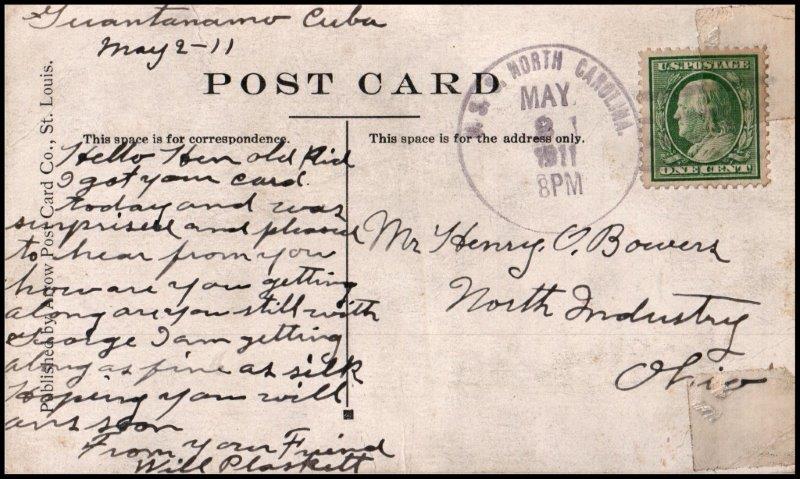 Guantanamo Cuba
May 2-11
POST CARD
U.S.S. NORTH CAROLINA.
MAY
2
1911
8PM
U.S.POSTAGE
ONE CENT
Published by Arrow Post Card Co., St. Louis.
This space is for correspondence.
Hello Hen old Kid
I got your card.
today and was
surprised and pleased
to hear from you
how are you getting
along are you still with
George I am getting
along as fine as silk
Hoping you will
ans soon
From your Friend
Will Plaskett
This space is for the address only.
Mr Henry. O. Bowers
North Industry
Ohio